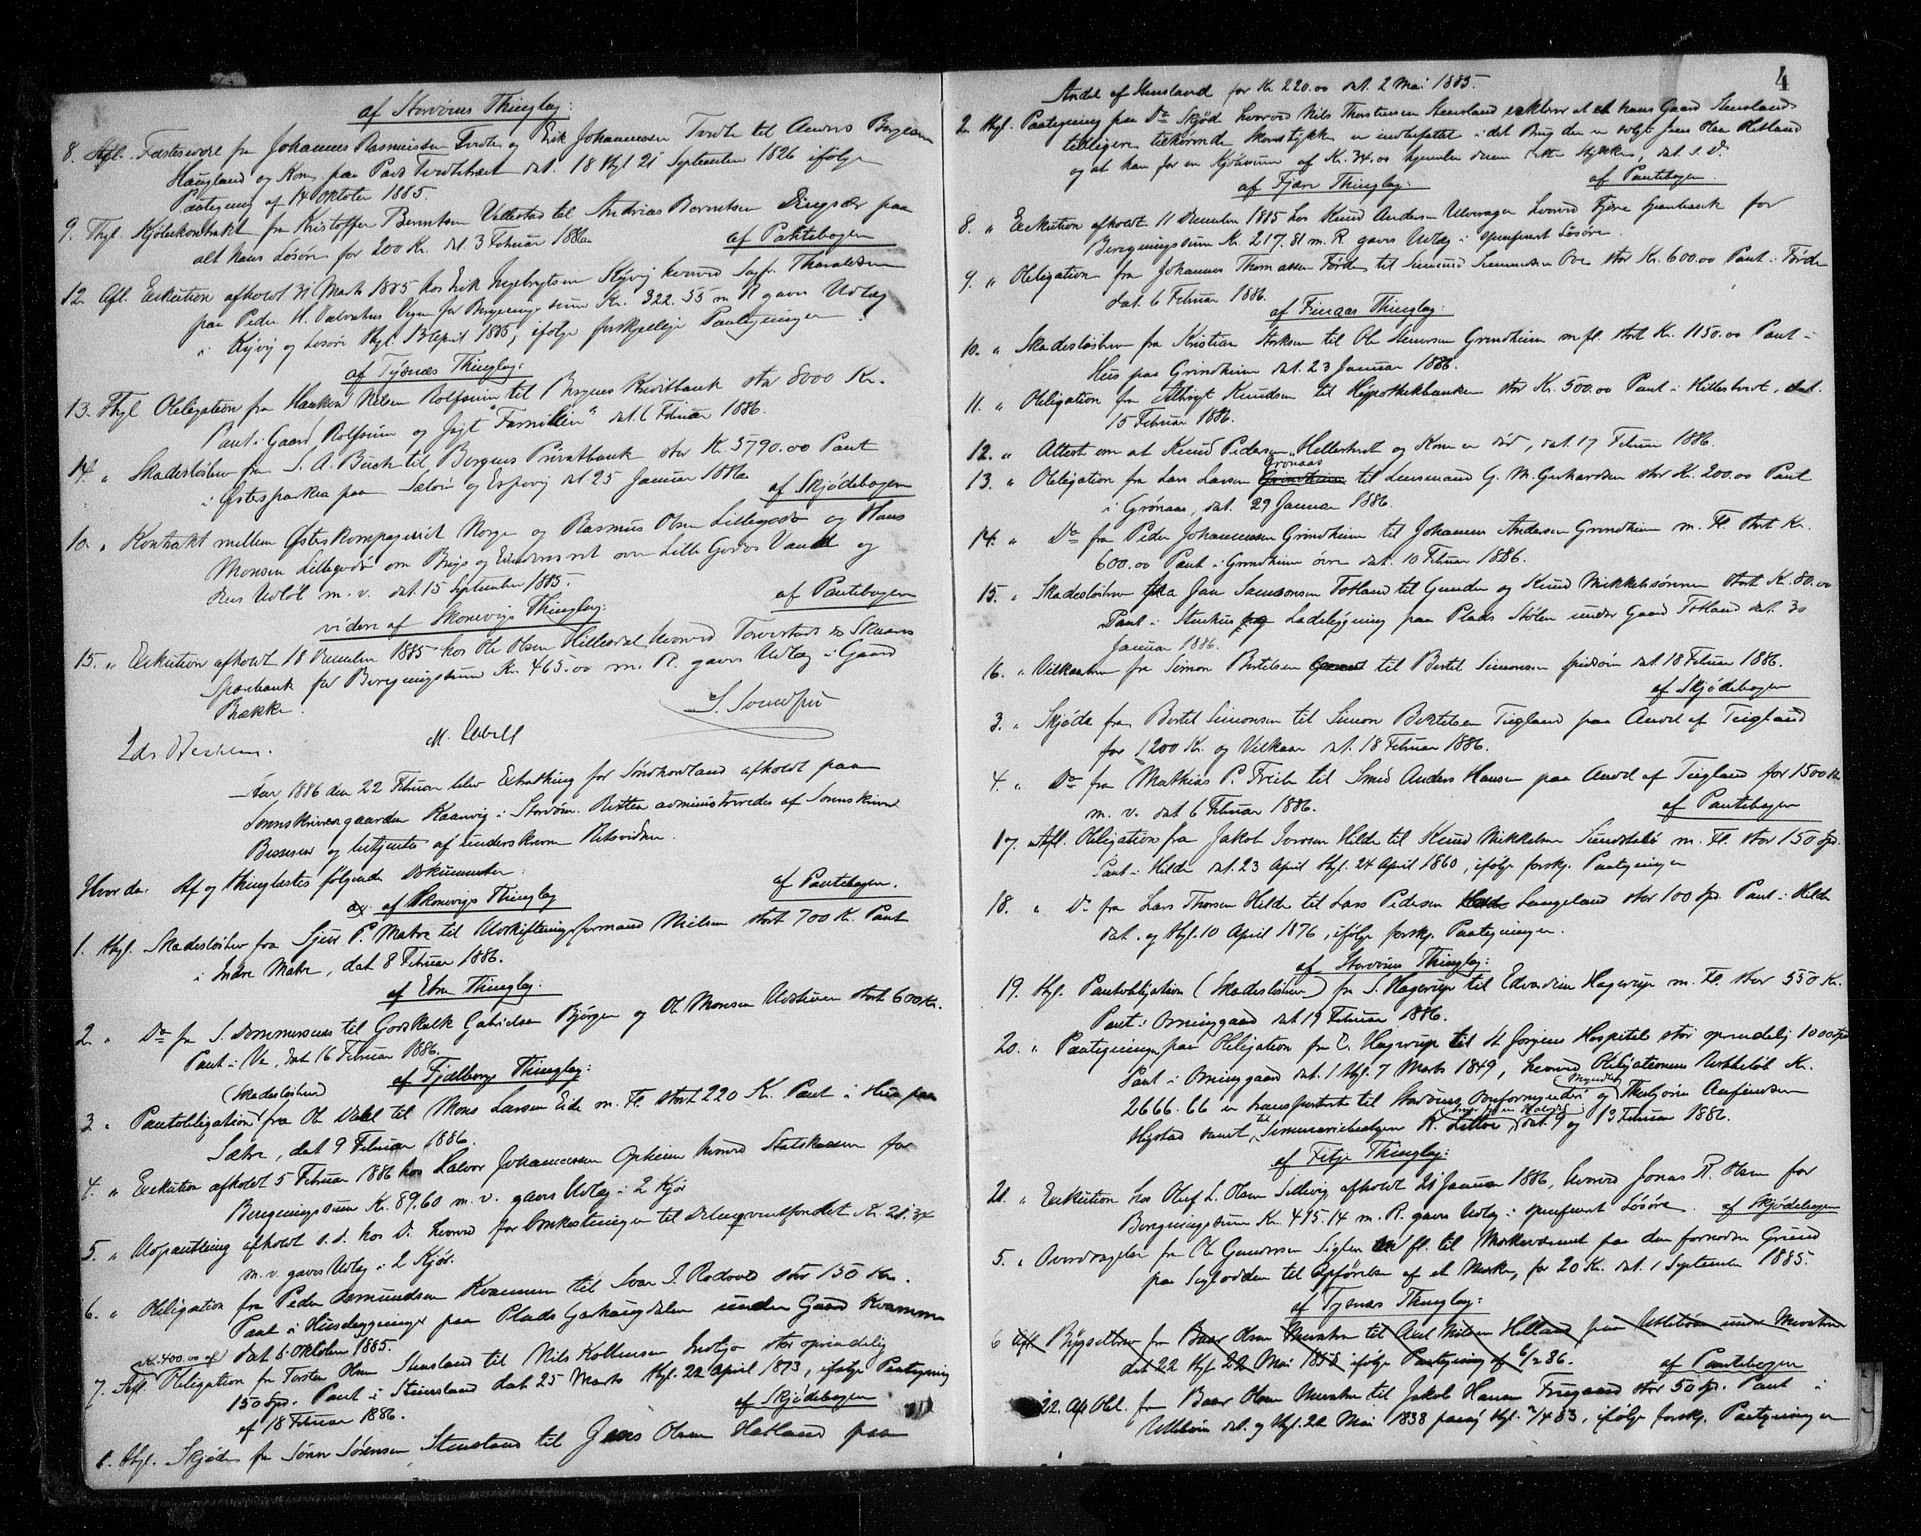 af Storøens Thinglag:
8. Afl. Fæsteseddel fra Johannes Rasmussen Tvedte og Erik Johannessen Tvedte til Anders
Haugland og Kone paa Pads Tvedtetræet dat. 18 thgl. 21 September 1826 ifølge
Paategning af 14 Oktober 1885.
9. Thgl. Kjøbekontrakt fra Kristoffer Berntsen Vallestad til Andrias Berentsen Engesær paa
alt hans Løsøre for 200 Kr. dat. 3 Februar 1886. af Pantebogen
12. Afl. Exekution afholdt 31 Marts 1885 hos Erik Ingebrigtsen Kyvig hvorved Sagf. Tharaldsen
paa Peder H. Vegne for Beregningssum Kr. 322.55 m. R. gaves Udlæg
i Kyvig og Løsøre thgl. April 1885, ifølge forskjellige Paategninger
af Tysnæs Thinglag:
13. Thgl Obligation fra Haaken Nilsen Rolfsnes til Bergens Kreditbank stor 8000 Kr.
Pant i Gaard Rolfsnes og Jagt "Familien" dat. 6 Februar 1886.
14. " Skadesløsbrev fra S. A. Buch til Bergens Privatbank stor Kr. 5790.00 Pant
i Østersparken paa Selø og Espevig dat 25 Januar 1886. af Skjødebogen
10. " Kontrakt mellem Østerskompagniet Norge og Rasmus Olsen Lillegodø og Hans
Monsen Lillegodø om Brug og Eiendomsret over Lille Godøs Vand og
dens Udløb m. v. dat. 15 September 1885. af Pantebogen
videre af Skonevigs Thinglag:
15. " Exekution afholdt 18 December 1885 hos Ole Olsen Hillesdal hvorved Tarvestads & Skaans
Sparebank for Beregningssum Kr. 465.00 m. R. gaves Udlæg i Gaard
Bække.
M. Lobell
Aar 1886 den 22 Februar blev Extrathing for Søndhordland afholdt paa
Sorenskrivergaarden Kaarevig i Storøen. Retten administreredes af Sorenskriver
og betjentes af underskrevne Retsvidner.
Hvorda: Af og thinglæstes følgende Dokumenter: af Pantebogen.
af Skonevigs Thinglag
1. thgl. Skadesløsbrev fra Sjur P. Matre til Udskiftningsformand Nielsen stort 700 Kr. Pant
i Indre Matre, dat 8 Februar 1886.
af Etne Thinglag:
2. " Do fra S. Sommersnes til Godskalk Gabrielsen Bjørgen og Ole Monsen stort 600 Kr.
Pant i Ve, dat 16 Februar 1886.
af Fjælbergs Thinglag:
(Skadesløsbrev)
3 " Pantobligation fra Ole til Mons Larsen Eide m. Fl. stort 220 Kr. Pant i Hus paa
Sætre, dat 9 Februar 1886.
4. " Exekution afholdt 5 Februar 1886 hos Halvor Johannessen Opheim hvorved Statskassen for
Beregningssum Kr. 89.60 m. v. gaves Udlæg i 2 Kjør
5. " Udpantning afholdt s. d. hos Do hvorved for Omkostninger til Delinqventfondet Kr. 21.34
m. v. gaves Udlæg i 2 Kjør.
6. " Obligation fra Peder Asmundsen Kvammen til Ivar J. Rodvold stor 150 Kr.
Pant i Husebygninger paa Plads Garhaugdalen under Gaard Kvamme
dat 5 Oktober 1885.
Kr. 400.00 af
7. Afl. Obligation fra Torsten Olsen Stensland til Nils Kolbensen stor oprindelig
150 Spd. Pant i Stensland dat 25 Marts thgl. 22 April 1873, ifølge Paategning
af 18 Februar 1886. af Skjødebogen
1. thgl. Skjøde fra Søren Sørensen Stensland til Jens Olsen Hetland paa
4
Andel af Stensland for Kr. 220.00 dat. 2 Mai 1885.
2. thgl. Paategning paa Do Skjøde hvorved Nils Thorstensen Stensland erklærer at et hans Gaard Stensland
tidligere tilhørende Skovstykke er indbefattet i det Brug der er solgt Jens Olsen Hetland
og at han for en Kjøbesum af Kr. 34.00 hjemler denne dette Stykke, dat. s. D.
af Fjære Thinglag: af Pantebogen.
8. " Exekution afholdt 11 December 1885 hos Knud Andersen Ulveragen hvorved Fjære Sparebank for
Beregningssum Kr. 217.81 m. R. gaves Udlæg i specificeret Løsøre.
9. " Obligation fra Johannes Thomassen Førde til Simund Simmensen Ove stor Kr. 600.00 Pant i Førde
dat. 6 Februar 1886.
af Finaas Thinglag:
10. " Skadesløsbrev fra Kristian Storksen til Ole Steensen Grindheim m. fl. stort Kr. 1150.00 Pant i
Hus paa Grindheim dat. 23 Januar 1886.
11. " Obligation fra Knudsen til Hypothekbanken stor Kr. 500.00 Pant i Hillestvet, dat.
15 Februar 1886.
12. " Attest om at Knud Pedersen Hellestvet og Kone er død, dat. 17 Februar 1886.
Grønaas
13. " Obligation fra Lars Larsen Grindheim til Lensmand G. M. Gerhardsen stor Kr. 200.00 Pant
i Grønaas, dat. 29 Januar 1886.
14. " Do fra Peder Johannessen Grindheim til Johannes Andersen Grindheim m. Fl. stort Kr.
600.00 Pant i Grindheim øvre dat. 10 Februar 1886.
15. " Skadesløsbrev fra Jan Samsonsen Totland til Gunder og Knud Mikkelsønner stort Kr. 80.00
Pant i Stenhus og Ladebygning paa Plads Stølen under Gaard Totland dat. 30
Januar 1886.
16. " Vilkaarsbrev fra Simon Bertelsen til Bertel Simonsen dat. 18 Februar 1886.
af Skjødebogen
3. " Skjøde fra Bertel Simonsen til Simon Bertelsen Tegland paa Andel af Teigland
for 1200 Kr. og Vilkaar dat. 18 Februar 1886.
4. " Do fra Mathias P. Trie til Smed Anders Hansen paa Andel af Tegland for 1500 Kr.
m. v. dat. 6 Februar 1886. af Pantebogen
17. Afl. Obligation fra Jakob Iversen Hilde til Knud Mikkelsen m. Fl. stor 150 Spd.
Pant i Hilde dat. 23 April thgl. 24 April 1860, ifølge forskj. Paategninger
18. " Do fra Lars Thorsen Hilde til Lars Pedersen Langeland stor 100 Spd. Pant i Hilde
dat. og thgl. 10 April 1876, ifølge forskj. Paategninger.
af Storøens Thinglag:
19. thgl. Pantobligation (Skadesløsbrev) fra S. Hagerup til Edvardine Hagerup m. Fl. stor 550 Kr.
Pant i Orninggaard dat 19 Februar 1886.
20. " Paategninger paa Obligation fra E. Hagerup til St Jørgens Hospital stor oprindelig 1000 Spd
Pant i Orninggaard dat. 1 thgl. 7 Marts 1849, hvorved Obligationens Restbeløb Kr.
2666.66 er transporteret til Storøens Overformynderi og Thorbjørn Aarfindsen
Hystad samt til Seminariebestyrer K. Lotsve dat. 9 og 13 Februar 1886.
af Fitje Thinglag:
21. " Exekution hos Oluf L. Olsen Selbvig, afholdt 21 Januar 1886, hvorved Jonas R. Olsen for
Beregningssum Kr. 415.14 m. R. gaves Udlæg i specificeret Løsøre. af Skjødebogen
5. " Overdragelse fra Ole Gundersen Siglen fl. til Merkevæsenet paa den fornødne Grund
paa Siglodden til Opførelse af et Mærke, for 20 Kr. dat. 1 September 1885.
af Tysnæs Thinglag:
6 Afl. Bygselbrev fra Baar Olsen til Axel Nilsen Helland paa Utlebøe under
dat 22 thgl. 22 Mai 1858 ifølge Paategning af 6/2 86. af Pantebogen
22. Afl Obl. fra Baar Olsen til Jakob Hansen stor 50 Spd. Pant i
Utlebøe dat. og thgl. 22 Mai 1838 thgl. 2/4 83, ifølge forskj. Paategninger